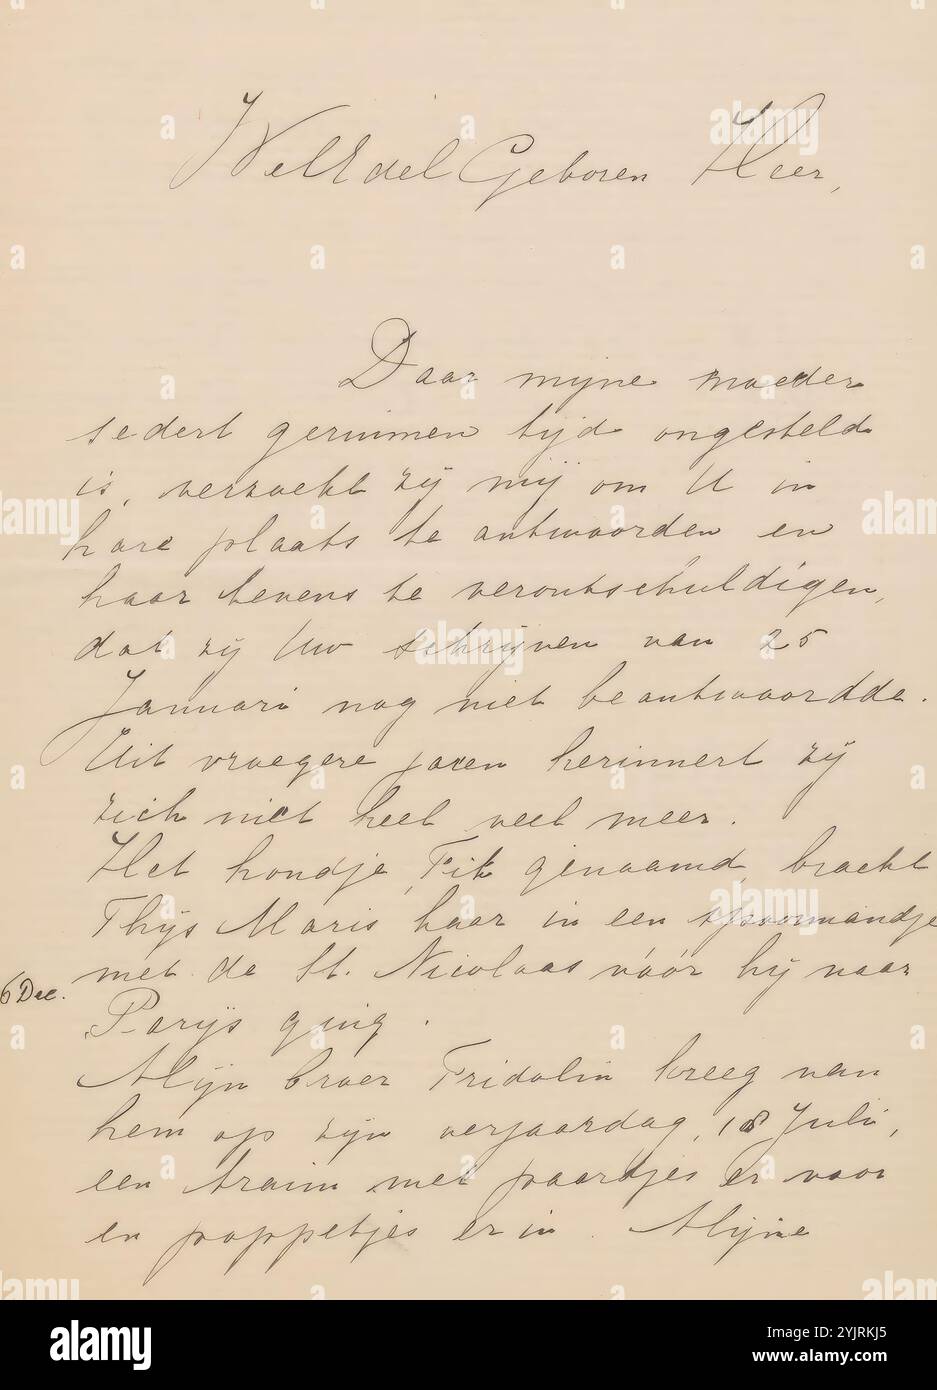 WelEdelGeboren Heer,
Daar mijne moeder
sedert geruimen tijd ongesteld
is, verzoekt zij mij om U in
hare plaats te antwoorden en
haar tevens te verontschuldigen,
dat zij Uw schrijven van 25
Januari nog niet beantwoordde.
Uit vroegere jaren herinnert zij
zich niet heel veel meer.
Het hondje, Fik genaamd, bracht
Thijs Maris haar in een spoormandje
met de St. Nicolaas vóór hij naar
6 Dec.
Parijs ging.
Mijn broer Fridolin kreeg van
hem op zijn verjaardag, 18 Juli,
een traim met paardjes er voor
en poppetjes er in. Mijne
alamy
Image ID: 2YJRKJ5
www.alamy.com